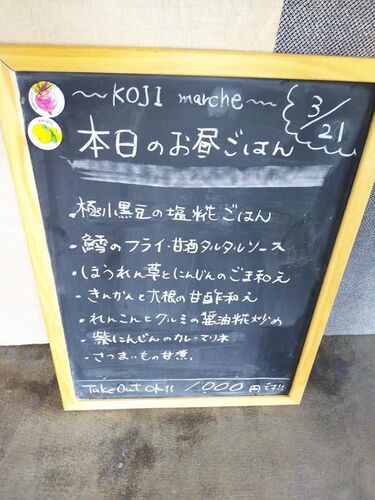 ～KOJI marche～
3/21
本日のお昼ごはん
・極小黒豆の塩糀ごはん
・鱈のフライ・甘酒タルタルソース
・ほうれん草とにんじんのごま和え
・きんかんと大根の甘酢和え
・れんこんとクルミの醤油糀炒め
・紫にんじんのカレーマリネ
・さつまいもの甘煮.
Take Out OK!! 1,000円です!!